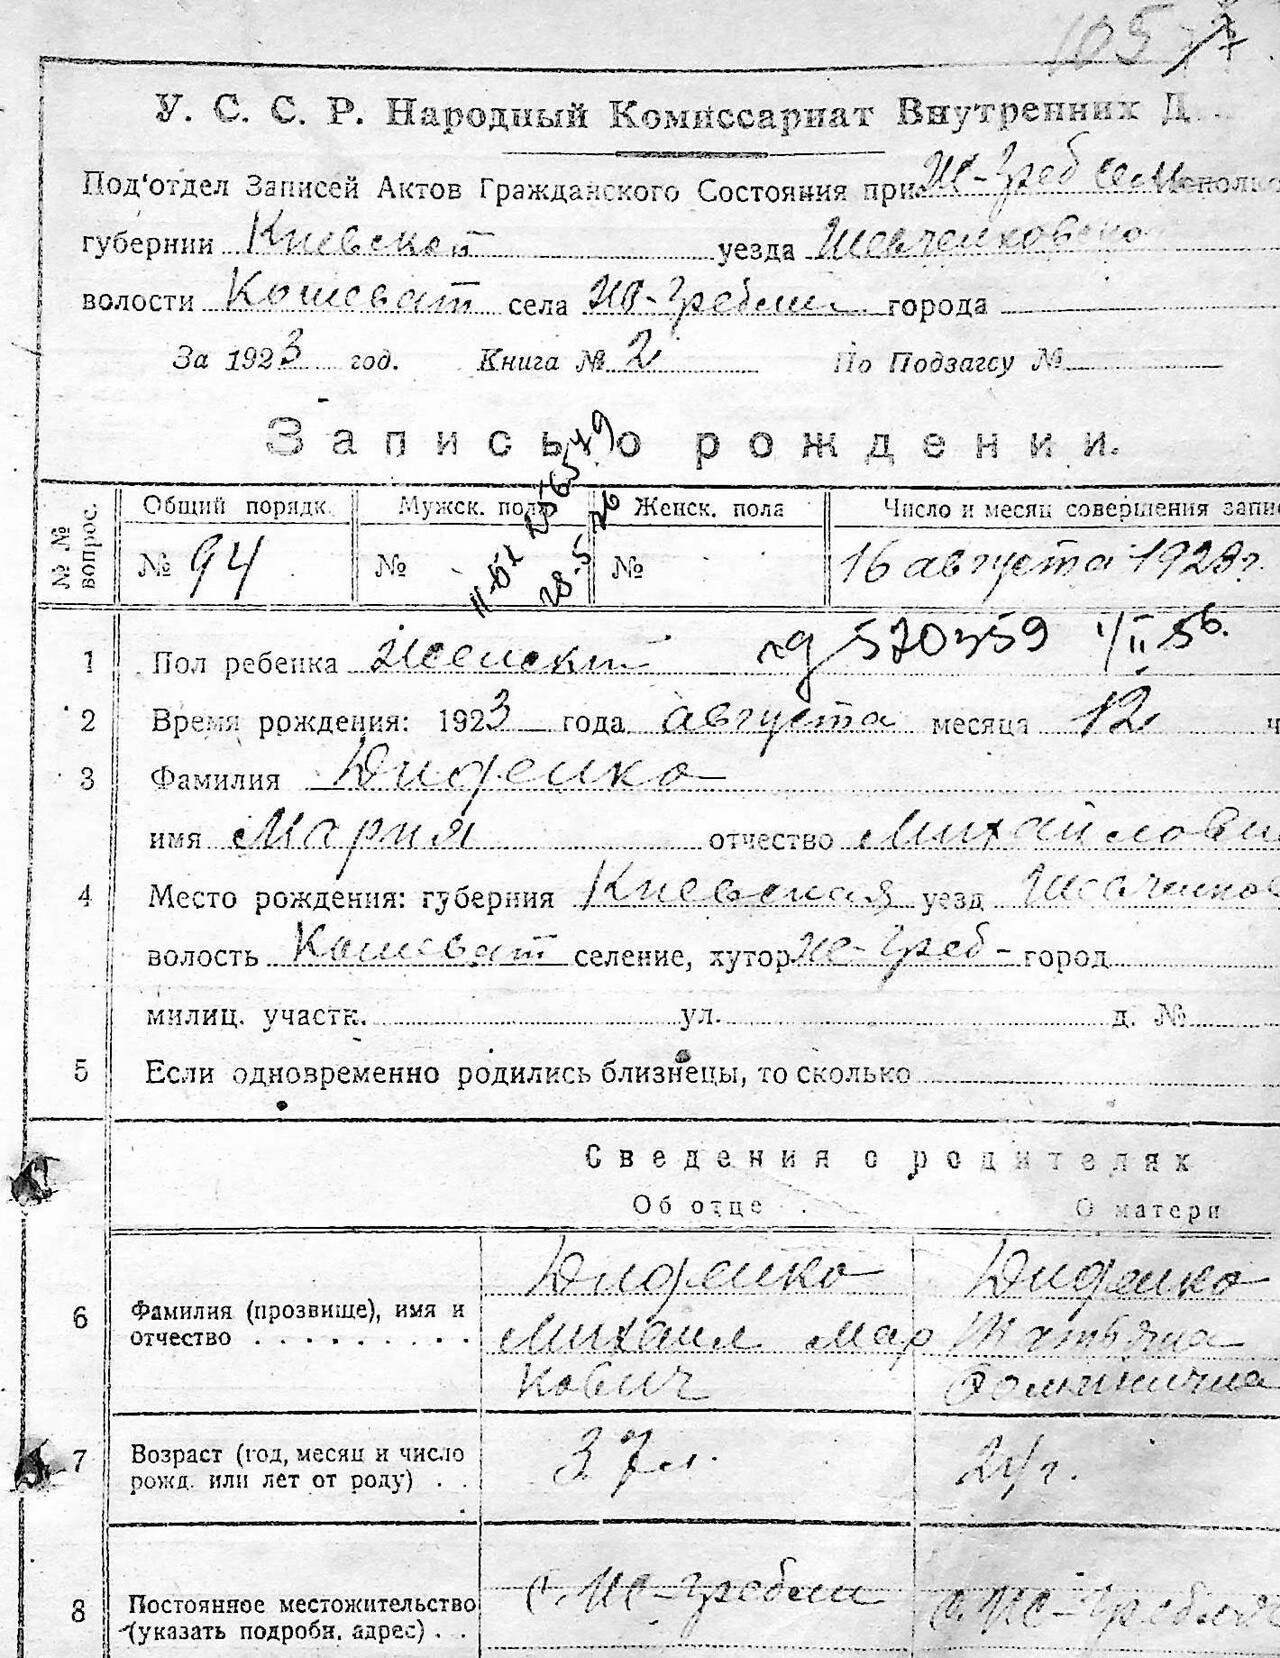 У. С. С. Р. Народный Комиссариат Внутренних Д
Под'отдел Записей Актов Гражданского Состояния при
губернии Киевской уезда Шевченковско
волости Кошеват села Ив-Гребли города
За 1923 год. Книга № 2 По Подзагсу №
Запись о рождении.
№ № вопрос. Общий порядк. Мужск. пола Женск. пола Число и месяц совершения запис
№ 94 № № 16 августа 1923 г.
1 Пол ребенка Женский 570359 1/II 56.
2 Время рождения: 1923 года августа месяца 12 ч
3 Фамилия Диденко
имя Мария отчество Михайловн
4 Место рождения: губерния Киевская уезд Шевченков
волость Кошеват селение, хутор город
милиц. участк. ул. д. №
5 Если одновременно родились близнецы, то сколько
Сведения о родителях
Об отце О матери
6 Фамилия (прозвище), имя и отчество Диденко Диденко
Михаил Мар Татьяна
кович
7 Возраст (год, месяц и число рожд. или лет от роду) 37 л. 24 г.
8 Постоянное местожительство (указать подробн. адрес)